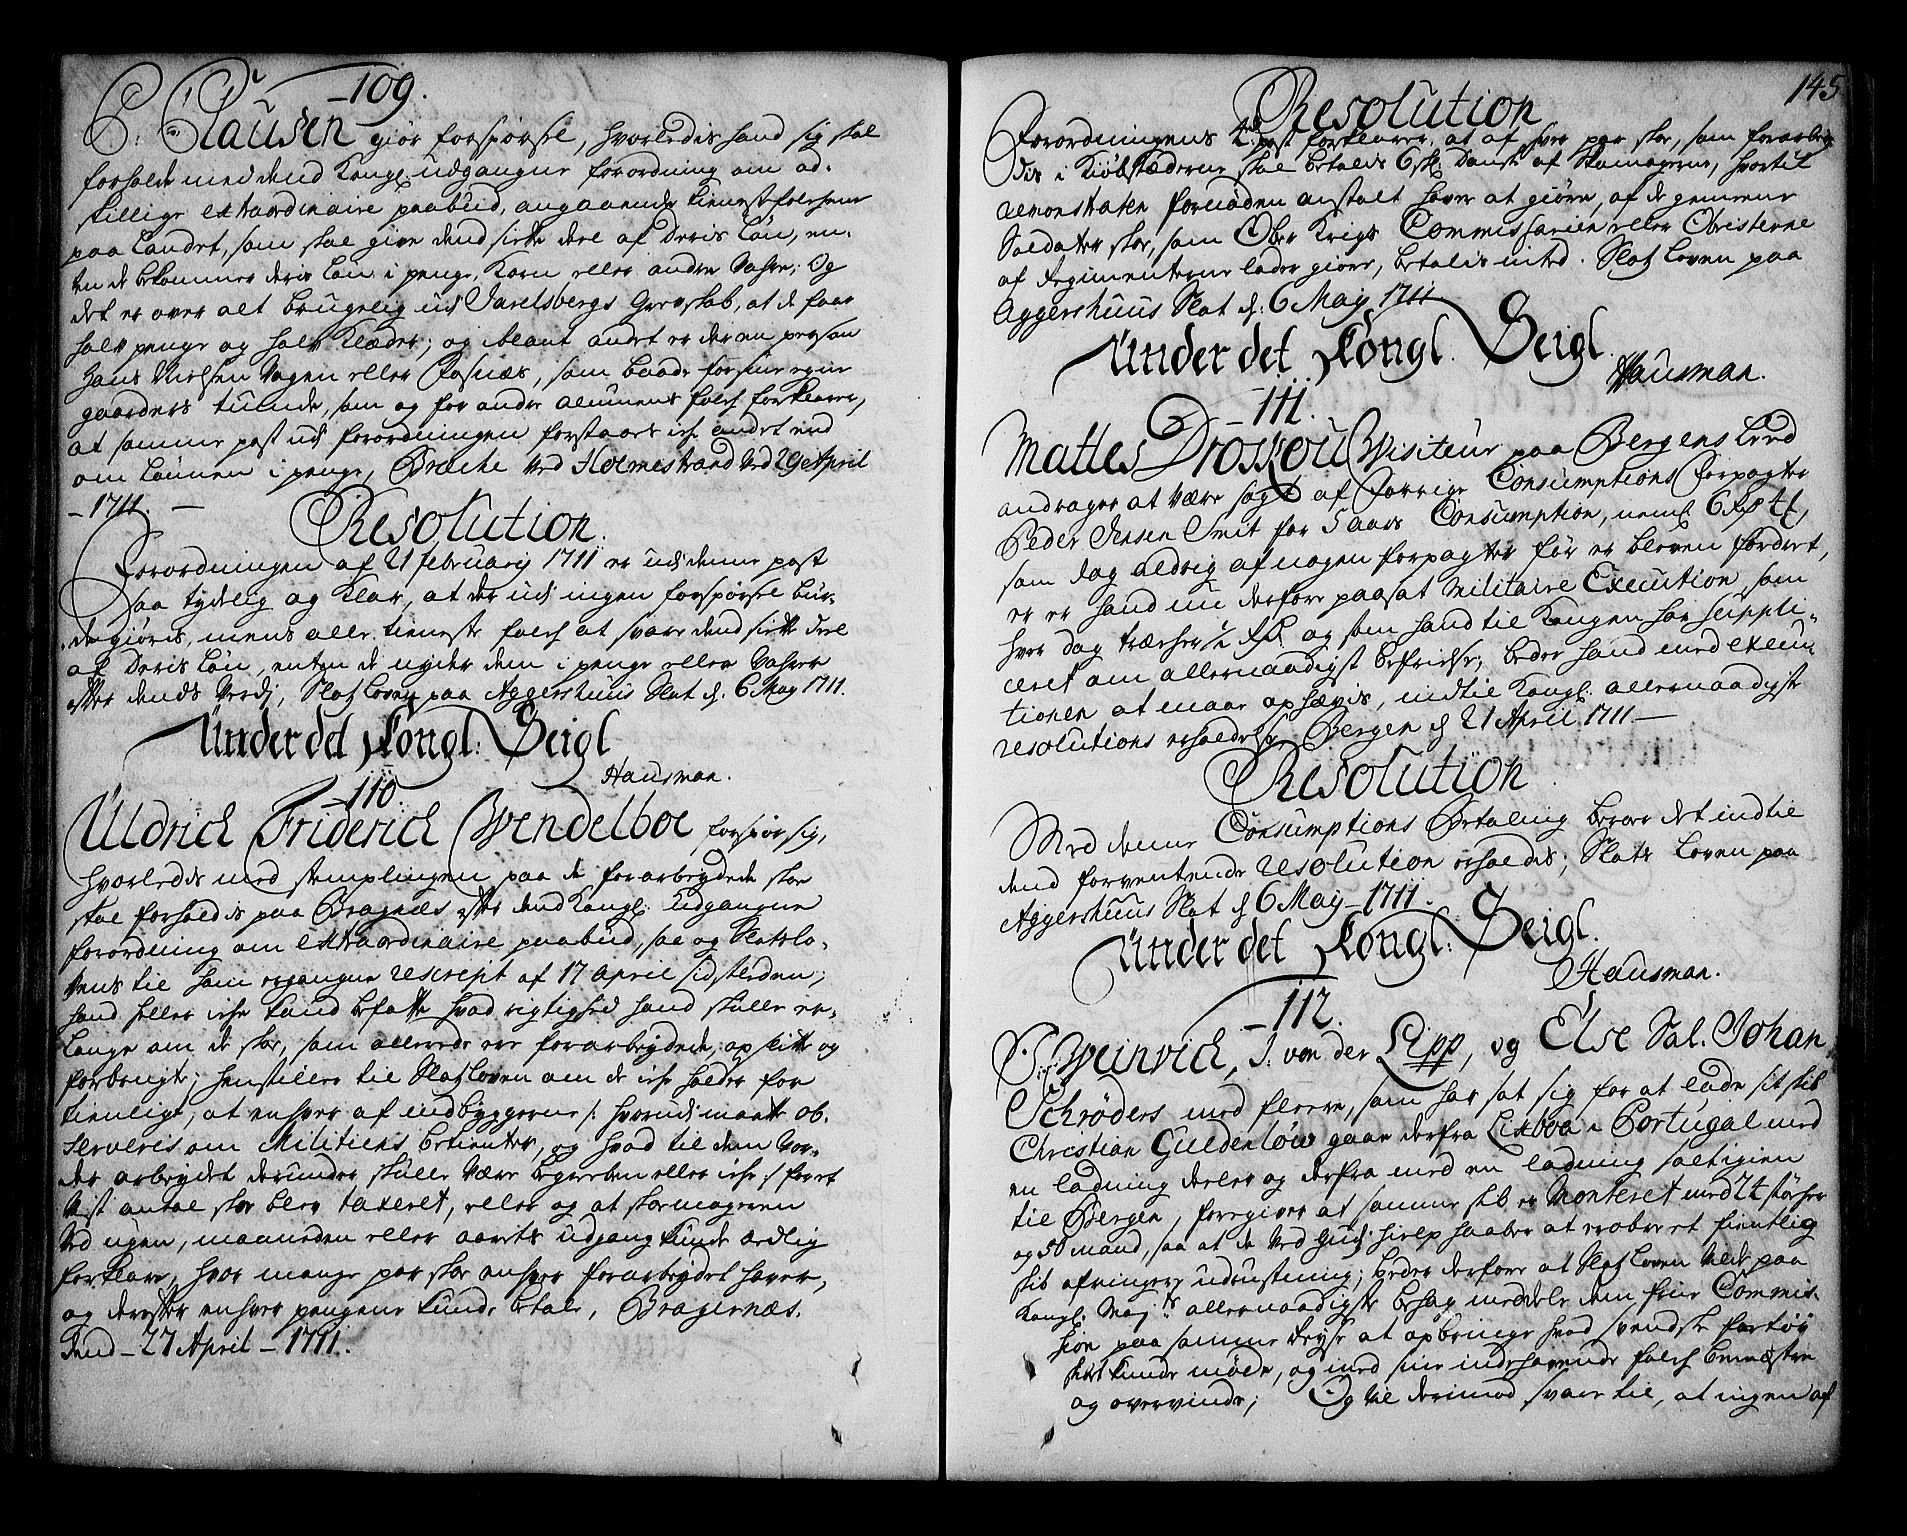 109.
C: Clausen giør forspørsel, hvorledis hand sig skal
forholde med dend Kongl. udgangne forordning om ad-
skillige extraordinaire paabud, angaaende tienestfolchene
paa Landet, som skal give dend siette deel af deris Løn, en-
ten de bekommer deris Løn i penge, Korn eller andre Vahre; Og
det er over alt brugelig udi Jarelsbergs Grevskab, at de faar
halv penge og halv Klæder; og iblant andet er der en persohn
Hans Nielsen Vogen eller Fosnæs, som baade for sine egne
gaarders tiende, som og for andre almuens folch forklarer,
at samme post udi forordningen forstaaes iche andet end
om Lønnen i penge, Breche ved Holmestrand ved 29 April
1711.
Resolution.
Forordningen af 21 februarij 1711 er udi denne post
saa tydelig og Klar, at der udi ingen forspørsel bur-
de giøris, mens alle tieneste folch at svare dend siette deel
af deris Løn, enten de nyder dem i penge eller Vahrer
efter dends Verdj, Slotzloven paa Aggershuus Slot d. 6 May 1711.
Under det Kongl: Seigl
Hausman.
110.
Uldrich Friderich Wendelboe, forspør sig,
hvorledis med stemplingen paa de forarbeydede skoe
skal forholdis paa Bragnæs efter dend Kongl: Udgangne
forordning om extraordinaire paabud, saa og Slotzlo-
vens til ham ergangne rescript af 17 april sidstleden;
hand heller iche Kand befatte hvad rigtighed hand skulle er-
lange om de skoe, som allerede ere forarbeydede, op slitte og
forbrugte; henstiller til Slotzloven om de iche holder for
tienligt, at enhver af indbyggerne /: hvorudi maatte ob-
serveris om Militiens betienter, og hvad til dem Vor-
der arbeydet derunder skulle være begreben eller iche :/ for et
vist antal skoe blev taxeret, eller og at skoemageren
ved ugen, maaneden eller aarets udgang Kunde ædlig
forklare, hvor mange par skoe enhver forarbeydet haver,
og derefter enhver pengene Kunde betale, Bragernæs.
dend 27 April 1711.
145
Resolution
Forordningens 2den post forklarer, at af hver par skoe, som forarbey-
dis i Kiøbstæderne skal betales 6 sk. dansk af Skomagerne, hvortil
demonstraten fornøden anstalt haver at giøre, af de gemeene
Soldatter skoe, som Ober Krigs Commissarien eller Obristerne
af Regimenterne lader giøre, betalis intet. Slotzloven paa
Aggershuus Slot d: 6 May 1711
Under det Kongl. Seigl.
Hausman.
111.
Mattes Droskou Visiteur paa Bergens Leed
andrager at være søgt af forrige Consumptions forpagter
Peder Jensen Smit for 5 aars Consumption, neml. 6 Rd 4 ,
som dog aldrig af nogen forpagter før er bleven fordret,
er er hand nu derfore paasat Militaire Execution, som
hver dag trecher 1/2 Rd. og som hand til Kongen har suppli-
ceret om allernaadigst befrielse; beder hand med execu-
tionen at maae ophævis, indtil Kongl. allernaadigste
resolutions erholdelse Bergen d 21 April 1711
Resolution.
Med denne Consumptions Betaling beroer det indtil
dend forventende resolution erholdes; Slots Loven paa
Aggershuus Slot d 6 May 1711.
Under det Kongl: Seigl.
Hausman.
112.
Weinvich, J. von der Lipp, og Else Sal. Johan
Schrøders med fleere, som har sat sig for at lade sit skib
Christian Guldenløw gaae derfra Lixboa i Portugal med
en ladning derhen og derfra med en ladning salt igien
til Bergen, foregiver at samme skib er Monteret med 24 støcher
og 50 mand, saa at de ved Guds hielp haaber at erobre et fientlig
skib af ringere udrustning; beder derfore at Slotzloven vilde paa
Kongl. Mayts allernaadigste behag meddele dem frie Commis-
sion paa samme Reyse at opbringe hvad svendske fartøy
skibet kunde møde, og med sine indehavende folch bemestre
og overvinde; Og vil derimod svare til, at ingen af